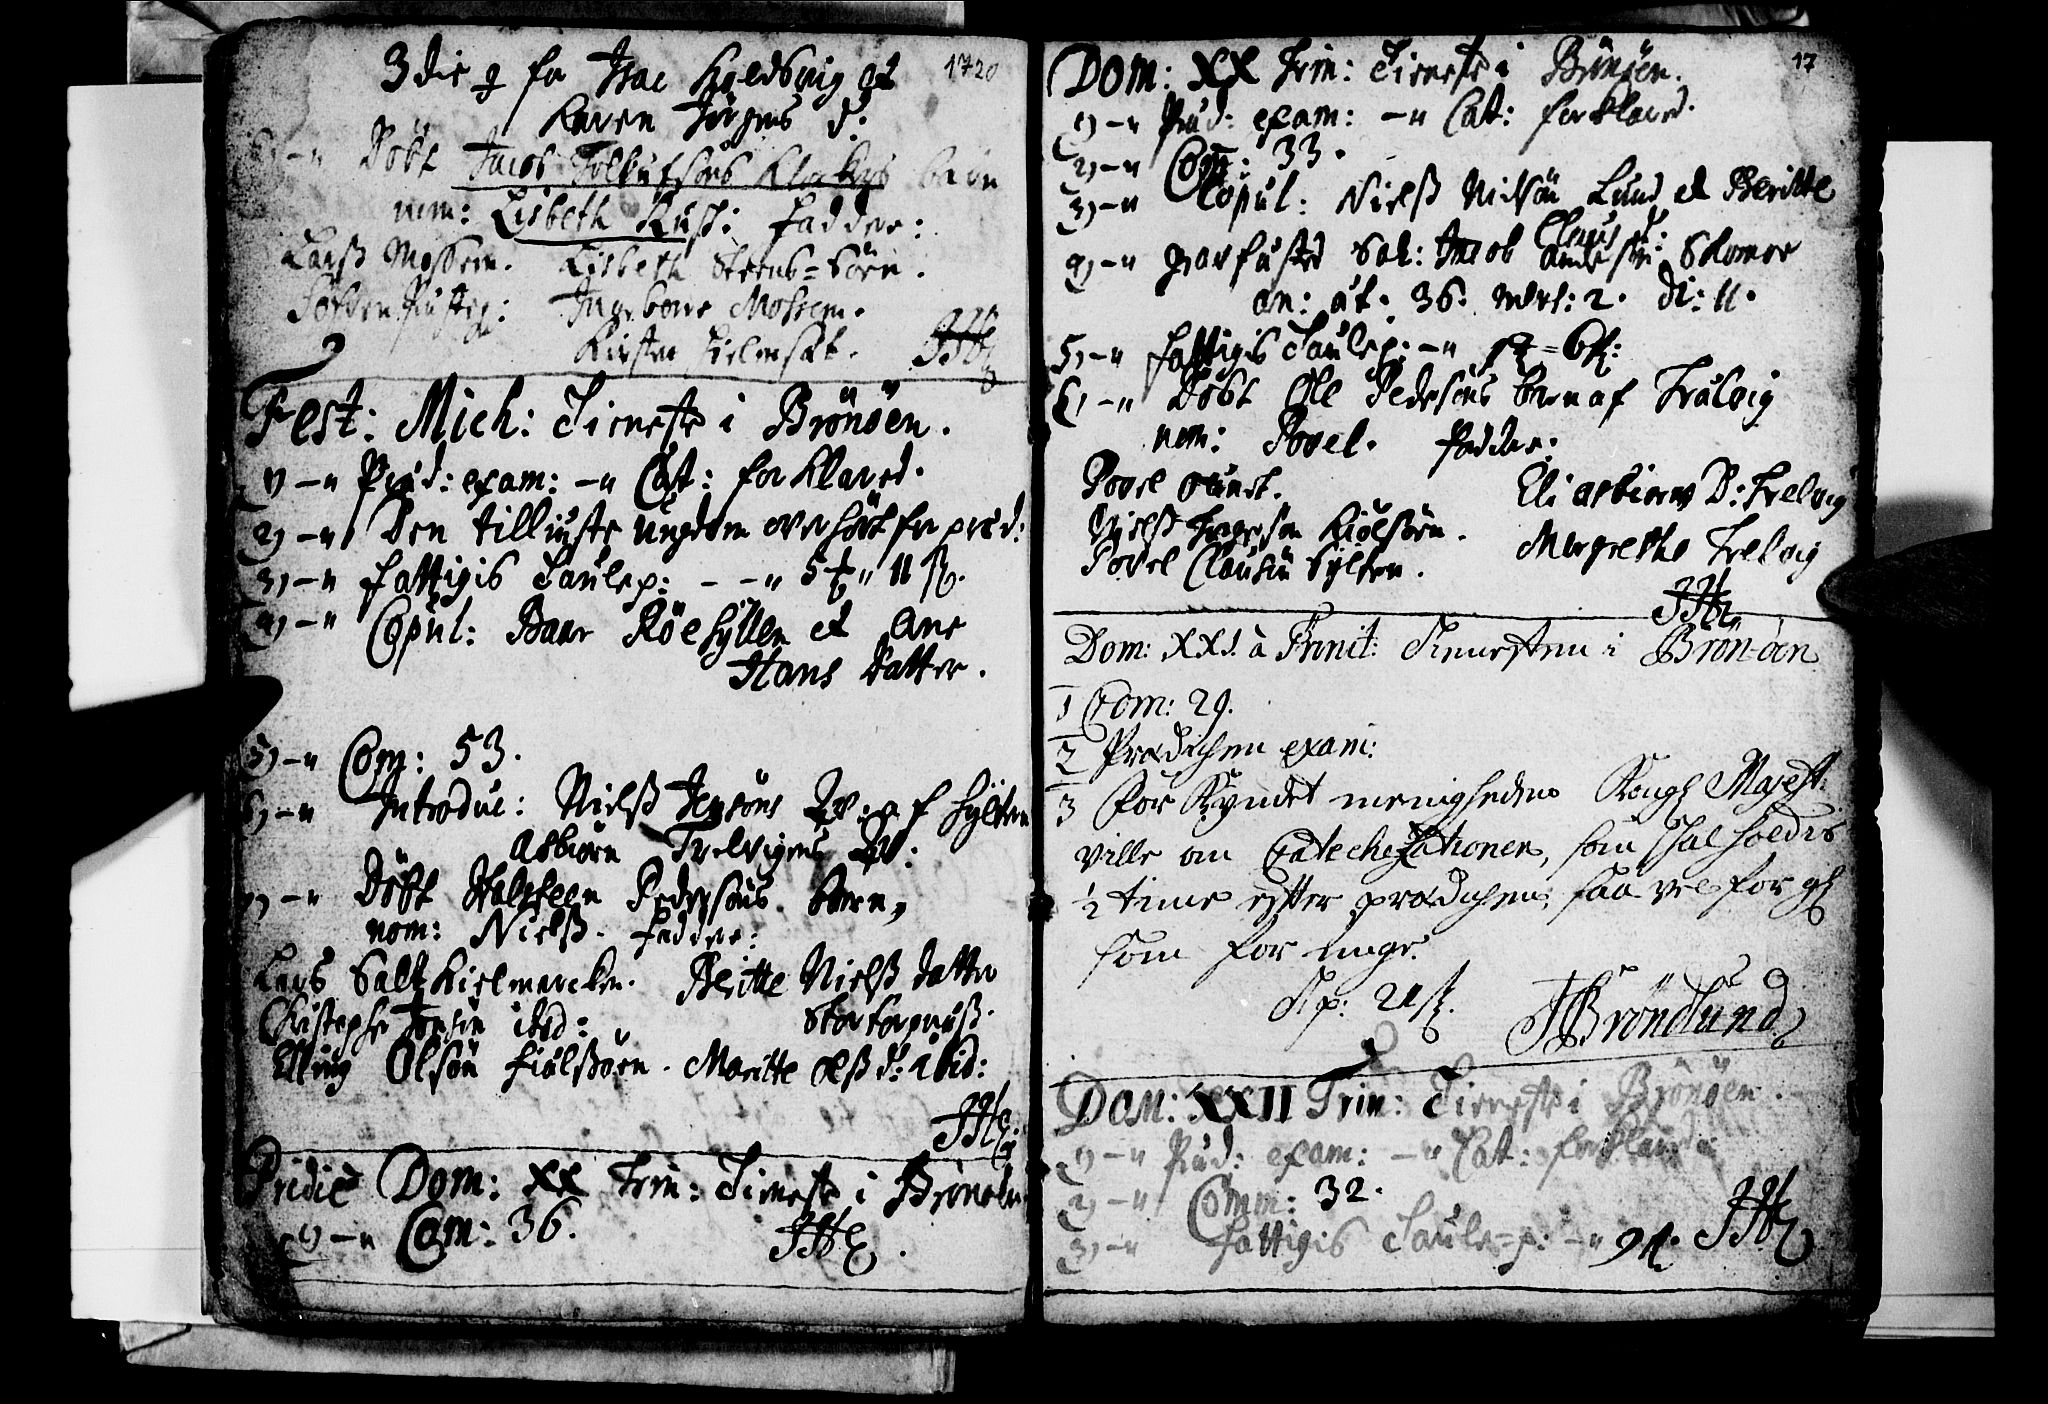 1720
3die for Isac Hoedsvig et
Karen Jörgens d:
6) -" Döbt Jacob Tolleufsöns Klockers barn
nom: Lisbeth Kirst: Faddere:
Larss Mossem. Lisbeth Steens-Sörn.
Ingeborre Mossem.
Kirsten
Fest: Mich: Tieneste i Brönöen.
1) -" Præd: exam: -" Cat: forklared.
2) -" Den tilliuste ungdom overhört for præd:
3) -" fattigis Taulep: - -" 5 " 11 sk.
4) -" Copul: Baar Röesyllen et Ane
Hans Datter.
5) -" Com: 53.
6) -" Introduc: Nielss Jensöns Qv: af Sylten
Asbiörn Trelvigens Qv:
7) -" Döbt Halsteen Pedersöns barn,
nom: Nielss. faddere:
Lars Salt Kielmarcken. Beritte Nielss datter
Christopher Jonsön ibid: Stortorgnæss.
Elling Olsön Fiölssörn. Maritte Olss d: ibid:
Pridie Dom: XX Trin: Tieneste i Brönöen.
1) -" Com: 36.
17
Dom: XX Trin: Tieneste i Brönöen.
1) -" Præd: exam: -" Cat: forklared.
2) -" Com: 33.
3) -" Copul: Nielss Nilsön Lund et Beritte
Claus d:
4) -" Jordfæsted Sal: Jacob Andersön Skomoe
an: æt. 36. mens: 2. di: 11.
5) -" fattigis Taulep: -"
6) -" Döbt Ole Pedersöns barn af Trælvig
nom: Povel. Faddere:
Povel Eli Asbiörns D: Trelvig
Nielss Ingersen Kiölsörn. Margrethe Trelvig
Povel Clausön Sylten.
Dom: XXI à Trinit: Tienesten i Brön-öen
1 Com: 29.
2 Prædichen exam:
3 For Kyndet menighedens Kongl Majest:
ville om Catechezationen, som skal holdes
1/2 time efter prædichen, saa vel for gl
som for unge.
Tp: 24 sk. JBröndlund
Dom: XXII Trin: Tieneste i Brönöen.
1) -" Præd: exam: -" Cat: forklared.
2) -" Comm: 32.
3) -" fattigis Taule-p: -" 9 sk.